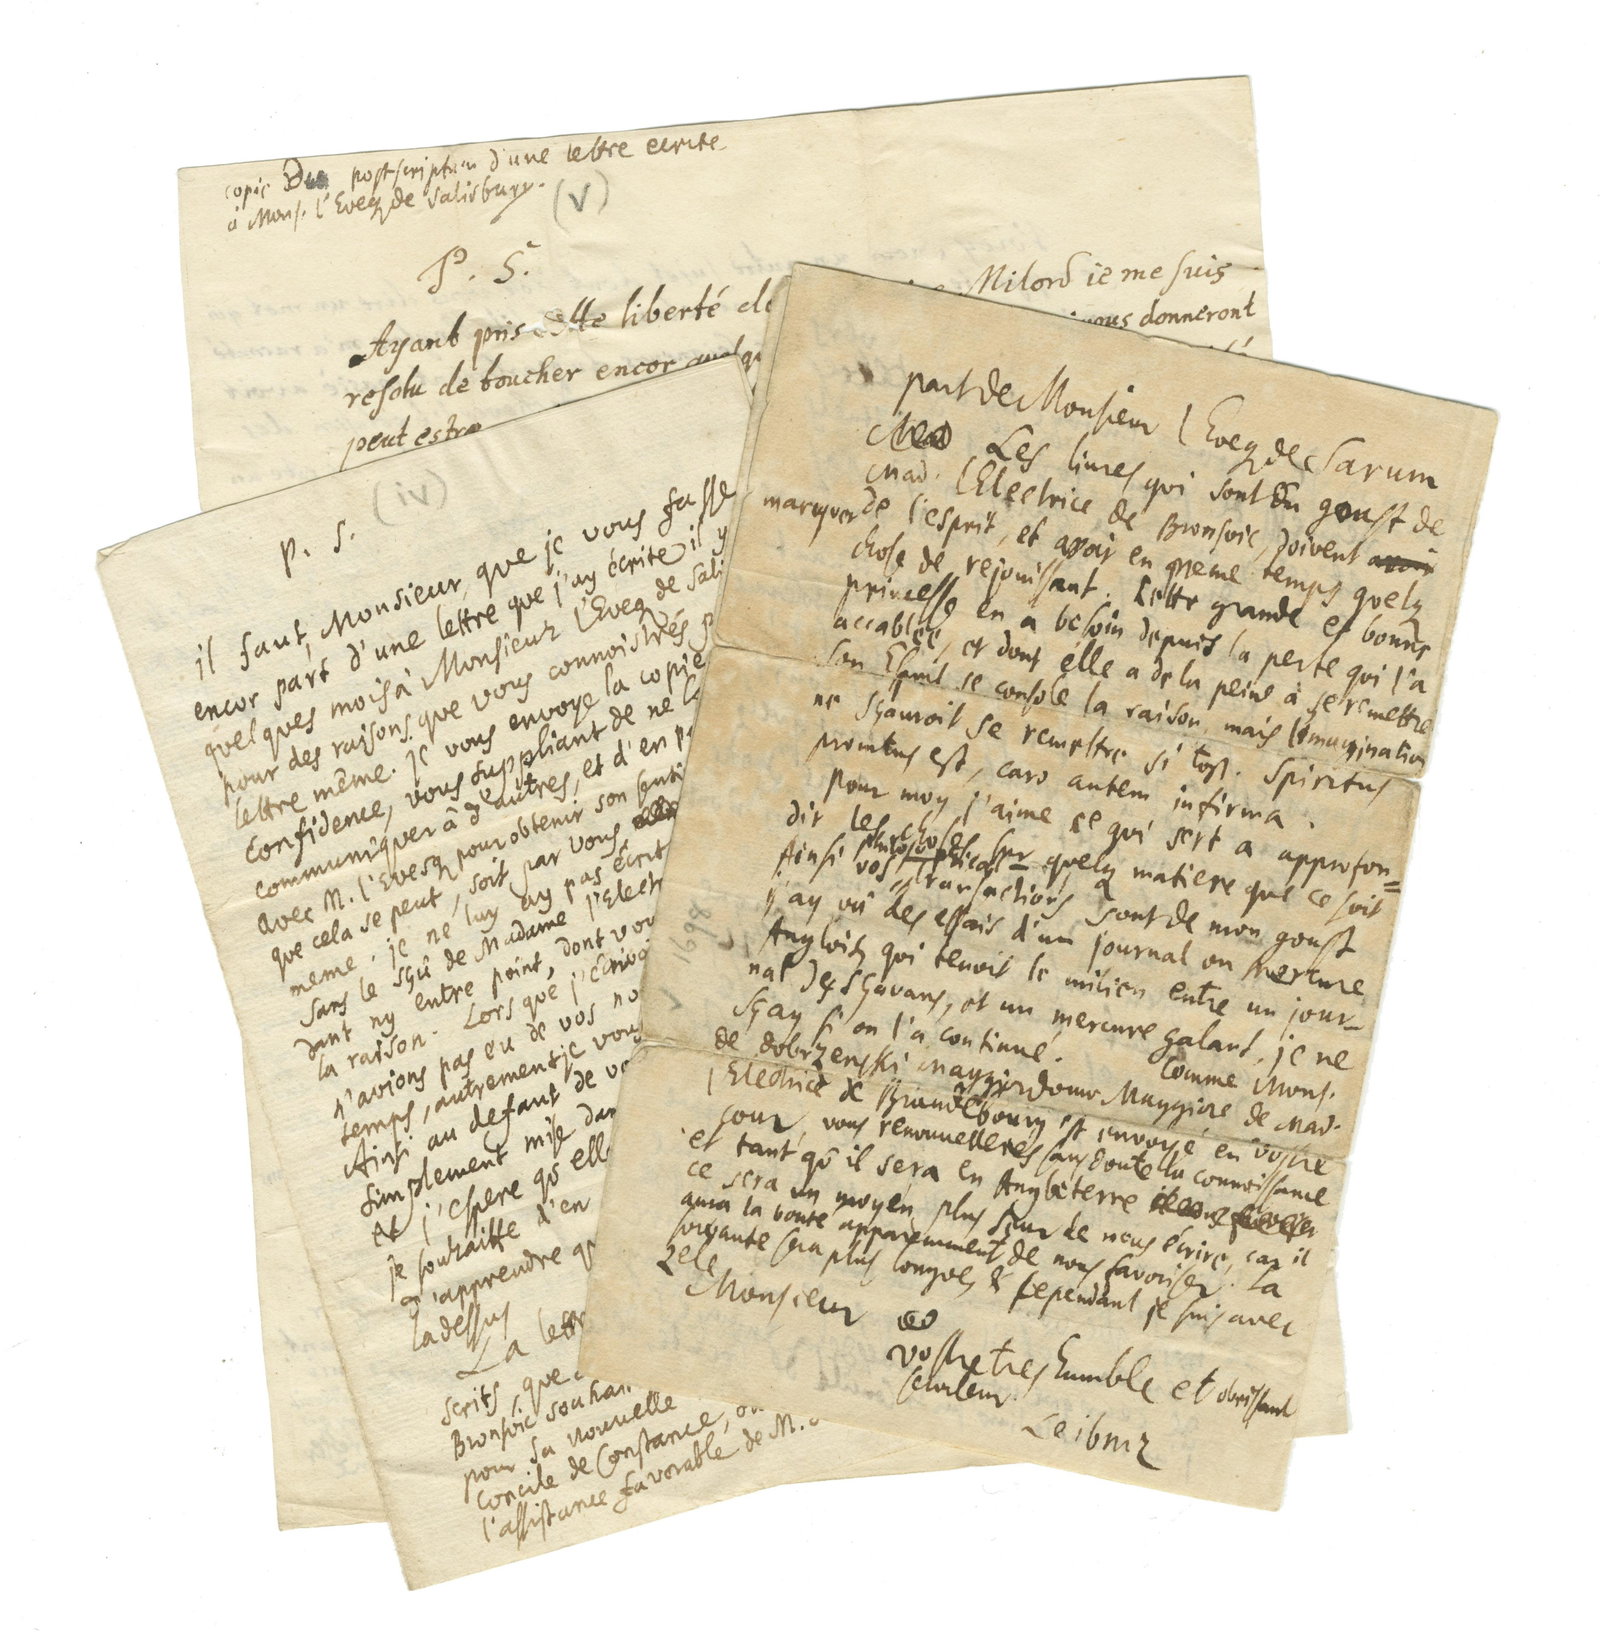 copie Du post-scriptum d'une lettre ecrite
à Mons. l'Eveq de Salisbury.
(V)
P. S.
Ayant pris cette liberté Milord ie me suis
resolu de boucher encor vous donneront
peut estre
(vi)
p. s.
il faut, Monsieur, que je vous fasse
encor part d'une lettre que j'ay écrite il y
quelques mois à Monsieur l'Eveq de Sali
pour des raisons que vous connoistrés
lettre même. je vous envoye la copie
confidence, vous suppliant de ne la
communiquer à d'autres, et d'en
avec M. l'Evesq pour obtenir son senti
que cela se peut, soit par vous
meme. je ne luy ay pas écrit
sans le sçû de Madame l'Elect
dant ny entre point, dont vou
la raison. Lors que j'écrivo
n'avions pas eu de vos no
temps, autrement je vou
Ainsi au defaut de vo
simplement mise dan
et j'espere qu'elle
je souhaitte d'en
d'apprendre
la dessus
La lett
scrits que
Bronsvic souhai
pour sa nouvelle
Concile de Constance, ou
l'assistance favorable de M.
part de Monsieur l'Eveq de Sarum
Les livres qui sont du goust de
Mad. l'Electrice de Bronsvic, doivent avoir
marquer de l'esprit, et avoir en meme temps quelq
chose de rejouissant. Cette grande et bonne
princesse en a besoin depuis la perte qui l'a
accablée, et dont elle a de la peine à se remettre
Son Esprit se console la raison, mais l'imagination
ne sçauroit se remettre si tost. Spiritus
promtus est, caro autem infirma.
Pour moy j'aime ce qui sert a approfon=
dir les choses sur quelq matiere que ce soit
Ainsi vos Transactions philosophicas sont de mon goust
j'ay vû des essais d'un journal ou mercure
Anglois, qui tenoit le milieu entre un jour-
nal des Sçavans, et un mercure galant, je ne
sçay si on l'a continué. Comme Mons.
de dobrzenski Maggiordomo Maggiore de Mad.
l'Electrice de Brandebourg est envoyé en vostre
cour, vous renouvelleres sans doute la connoissance
et tant qu'il sera en Angleterre
ce sera un moyen plus seur de nous écrire, car il
aura la bonté apparemment de nous favoriser. La
suivante sera plus longue, & cependant je suis avec
zele
Monsieur
vostre tres humble et obeissant
serviteur
Leibniz
V 1698